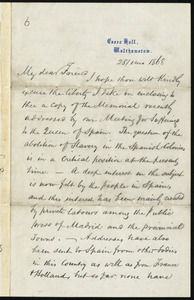 6
Essex Hall,
Walthamstow.
28/ 1868
My dear Friend
I hope thou wilt kindly
excuse the liberty I take in enclosing to
thee a copy of the Memorial recently
addressed by our Meeting for Sufferings
to the Queen of Spain. The question of the
abolition of Slavery in the Spanish Colonies
is in a critical position at the present
time — A deep interest in the subject
is now felt by the people in Spain
and this interest has been mainly created
by private labours among the Public
press of Madrid and the provincial
Towns. — Addresses have also
been sent to Spain from other bodies
in this Country as well as from France
& Holland, but so far none have